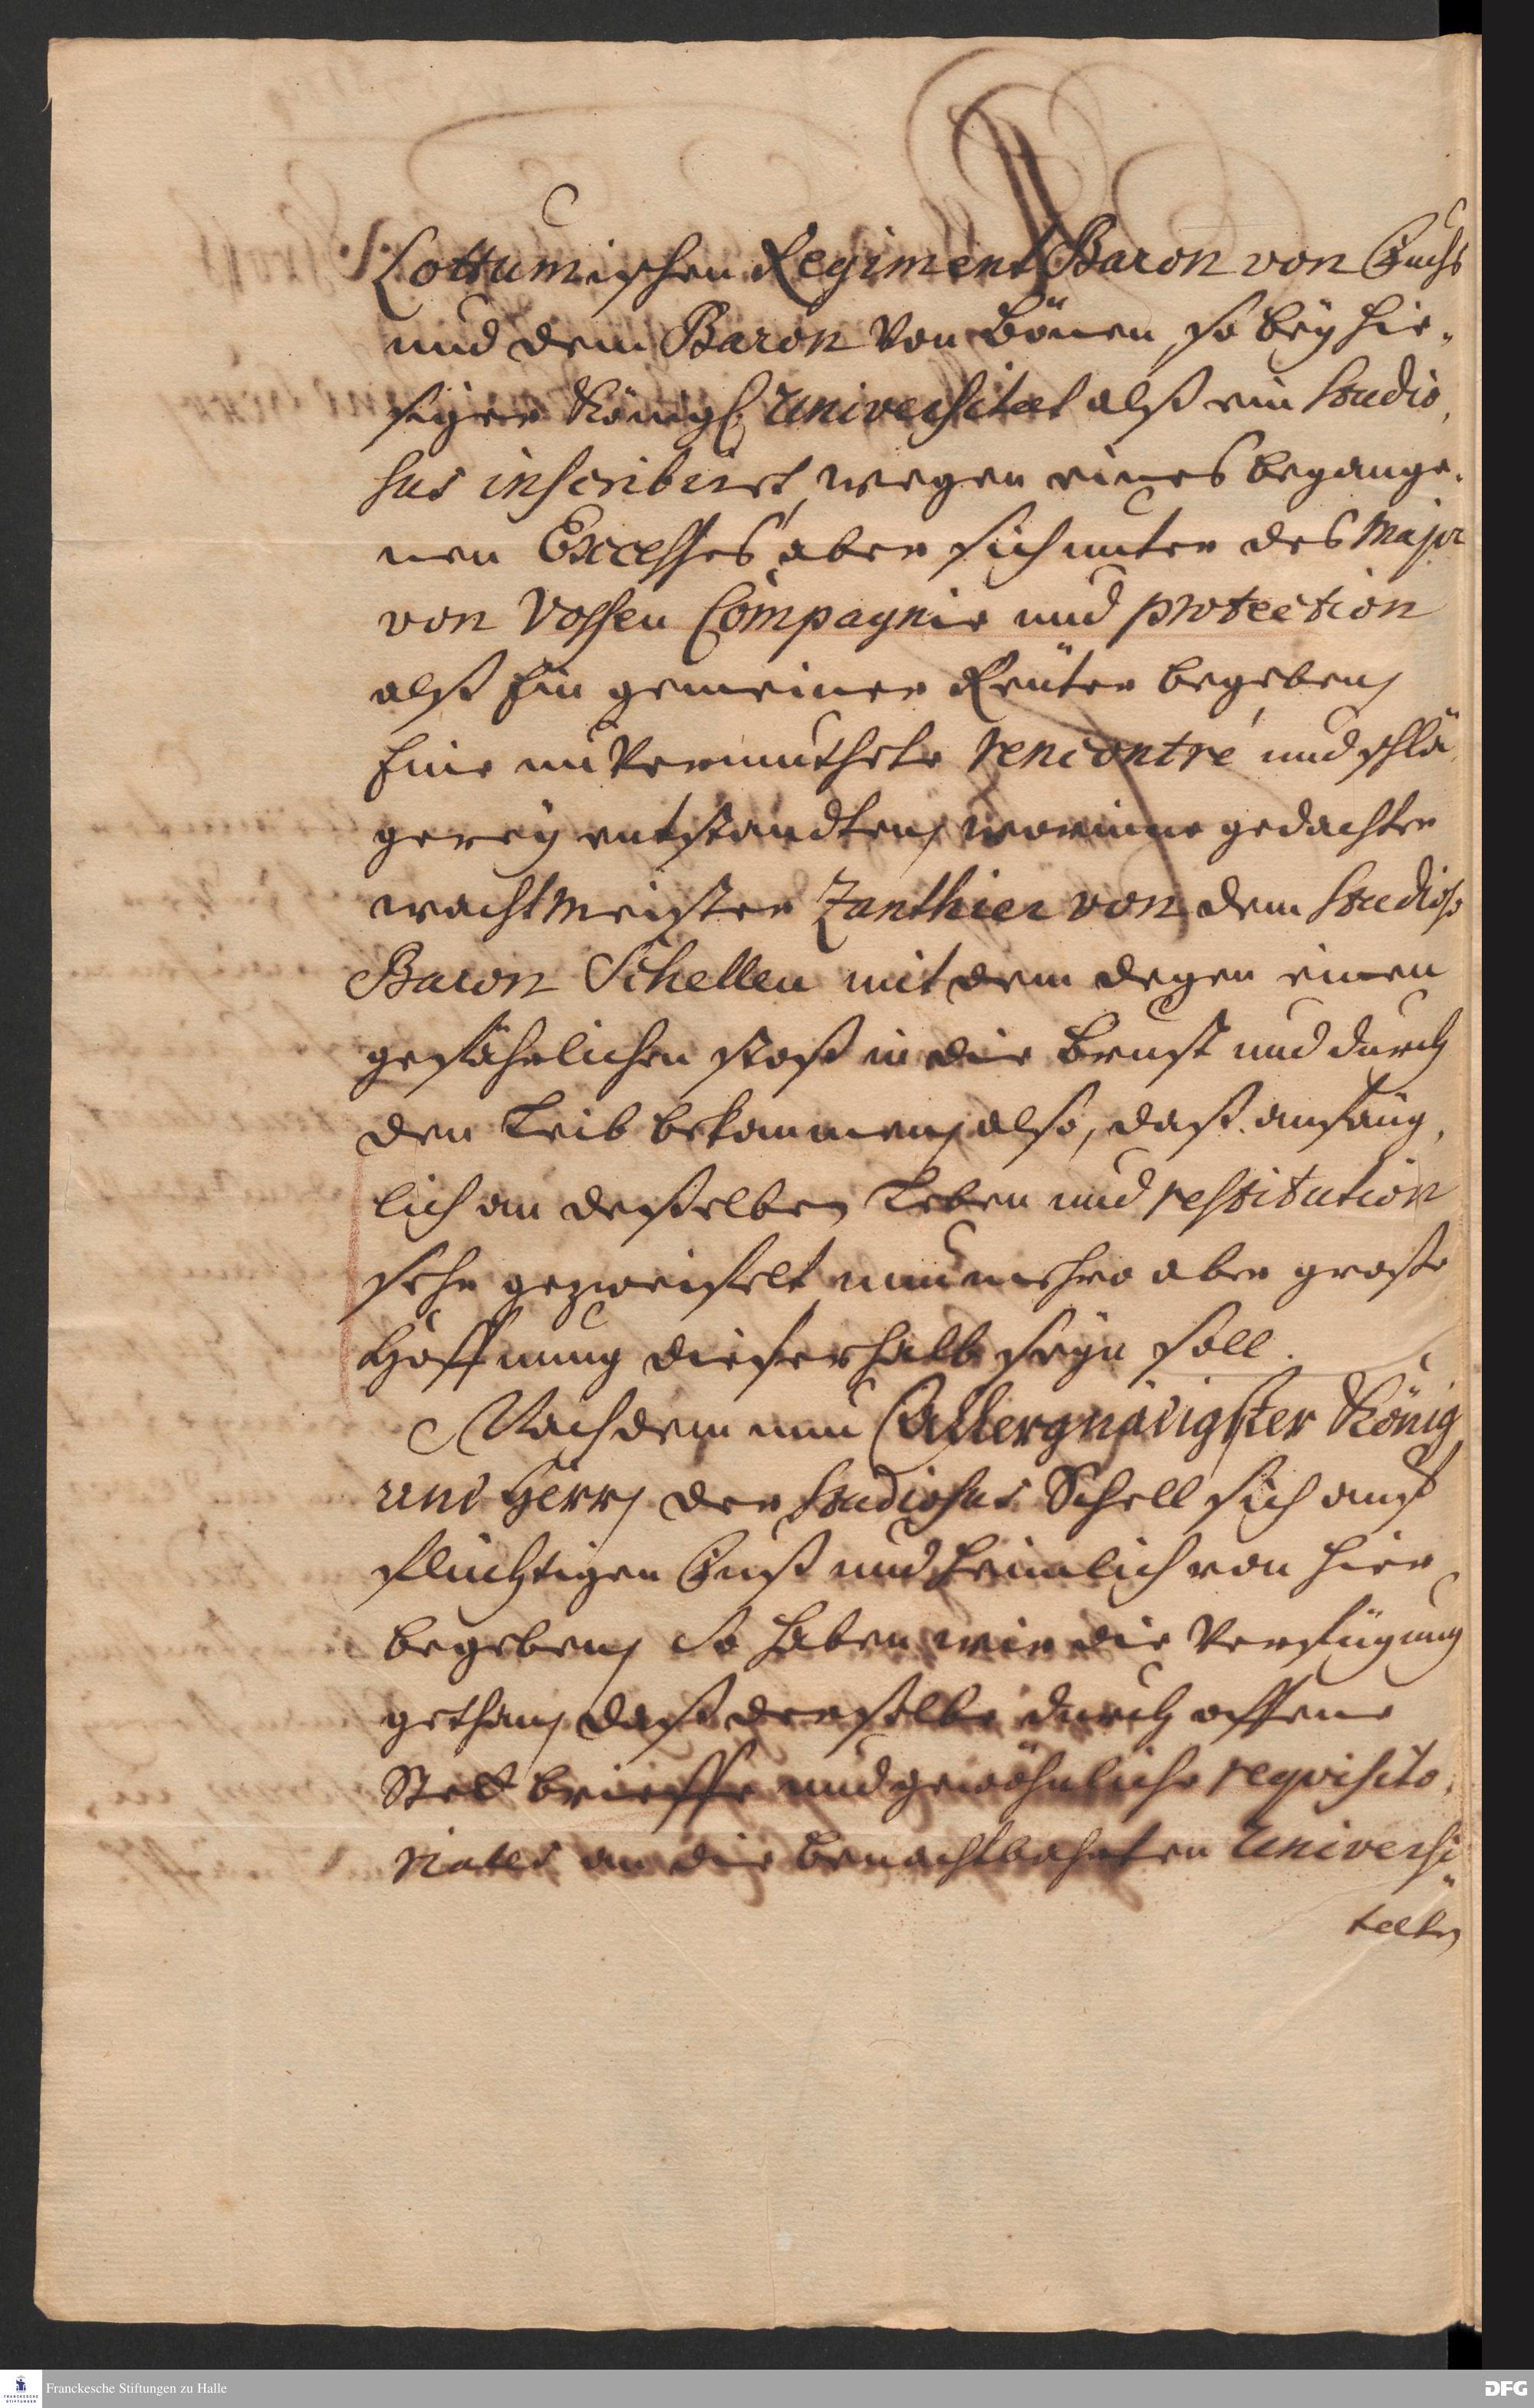 Lottumischen Regiment Baron von Fuchs
und dem Baron von Bönen, so bey hie-
siger Königl. Universitaet alß ein Studio-
sus inscribirt, wegen eines begange-
nen Excesses aber sich unter des Major
von Vossen Compagnie und protection
alß Ein gemeiner Reüter begeben,
Eine unvermuthete rencontre und schlä-
gerey entstandten, worinne gedachter
wachtmeister Zanthier von dem Studioso
Baron Schellen mit dem degen einen
gefährlichen stoß in die Brust und durch
den Leib bekommen, also, daß anfäng-
lich an deßelben Leben und restitution
sehr gezweifelt, nunmehro aber große
Hoffnung dieserhalb seyn soll.
Nachdem nun Allergnädigster König
und Herr, der Studiosus Schell sich auf
flüchtigen Fuß und heimlich von hier
begeben, So haben wir die Verfügung
gethan, daß derselbe durch offene
Steckbrieffe und gewöhnliche requisito-
riales an die benachtbahrten Universi-
taeten
Franckesche Stiftungen zu Halle
FRANCKESCHE STIFTUNGEN
DFG